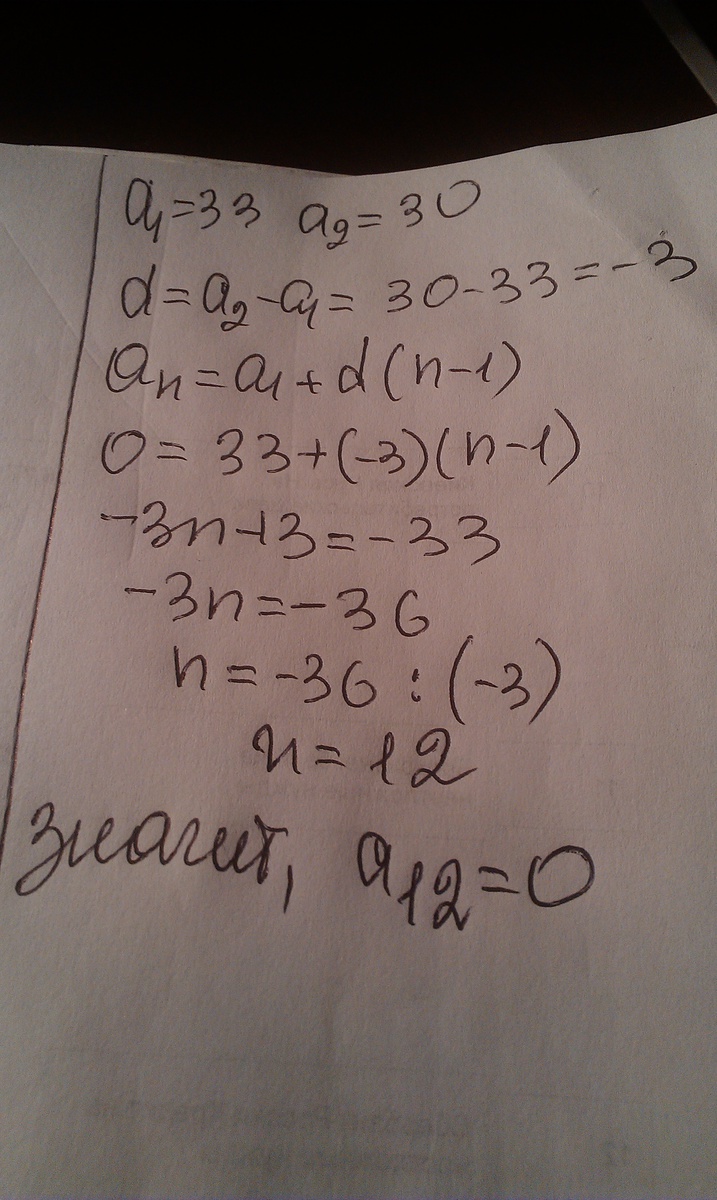 a₁=33 a₂=30
d=a₂-a₁=30-33=-3
aₙ=a₁+d(n-1)
0=33+(-3)(n-1)
-3n+3=-33
-3n=-36
n=-36:(-3)
n=12
значит, a₁₂=0